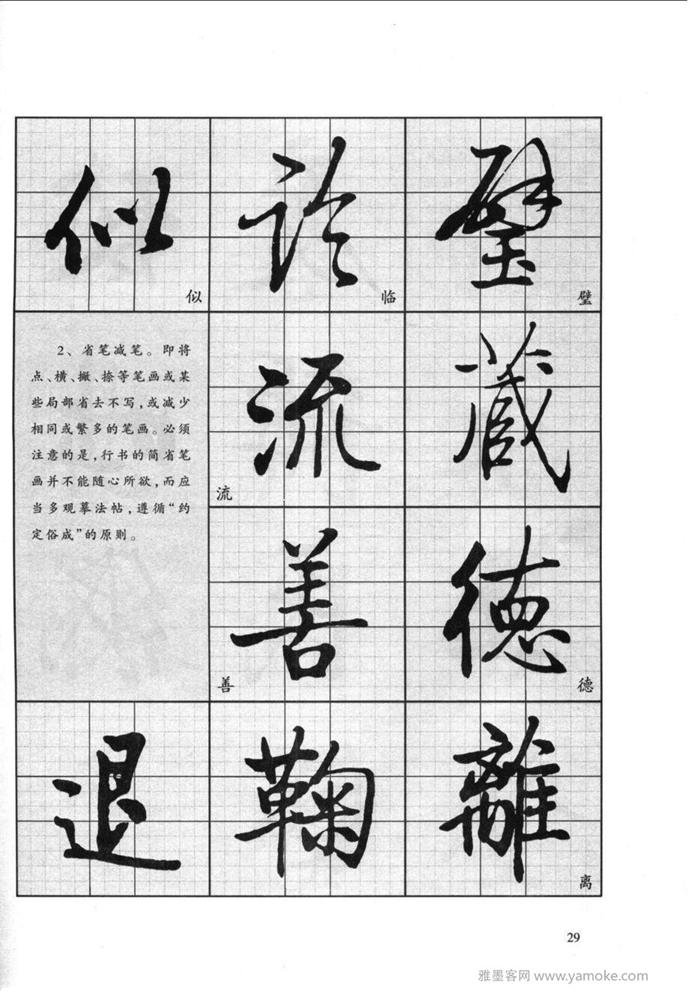 似 臨 璧
似 临 璧
2、省笔减笔。即将
点、横、撇、捺等笔画或某
些局部省去不写，或减少
相同或繁多的笔画。必须
注意的是，行书的简省笔
画并不能随心所欲，而应
当多观摹法帖，遵循“约
定俗成”的原则。
流 藏
流
善 德
善 德
退 鞠 離
离
29
雅墨客网 www.yamoke.com